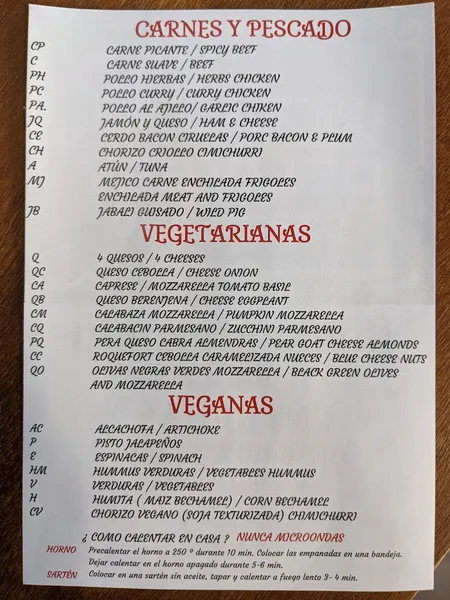 CARNES Y PESCADO
CP CARNE PICANTE / SPICY BEEF
C CARNE SUAVE / BEEF
PH POLLO HIERBAS / HERBS CHICKEN
PC POLLO CURRY / CURRY CHICKEN
PA. POLLO AL AJILLO/ GARLIC CHIKEN
JQ JAMÓN Y QUESO / HAM & CHEESE
CE CERDO BACON CIRUELAS / PORC BACON & PLUM
CH CHORIZO CRIOLLO CIMICHURRI
A ATÚN / TUNA
MJ MEJICO CARNE ENCHILADA FRIGOLES
ENCHILADA MEAT AND FRIGOLES
JB JABALI GUISADO / WILD PIG
VEGETARIANAS
Q 4 QUESOS / 4 CHEESES
QC QUESO CEBOLLA / CHEESE ONION
CA CAPRESE / MOZZARELLA TOMATO BASIL
QB QUESO BERENJENA / CHEESE EGGPLANT
CM CALABAZA MOZZARELLA / PUMPKIN MOZZARELLA
CQ CALABACIN PARMESANO / ZUCCHINI PARMESANO
PQ PERA QUESO CABRA ALMENDRAS / PEAR GOAT CHEESE ALMONDS
CC ROQUEFORT CEBOLLA CARAMELIZADA NUECES / BLUE CHEESE NUTS
QO OLIVAS NEGRAS VERDES MOZZARELLA / BLACK GREEN OLIVES
AND MOZZARELLA
VEGANAS
AC ALCACHOFA / ARTICHOKE
P PISTO JALAPEÑOS
E ESPINACAS / SPINACH
HM HUMMUS VERDURAS / VEGETABLES HUMMUS
V VERDURAS / VEGETABLES
H HUMITA ( MAIZ BECHAMEL) / CORN BECHAMEL
CV CHORIZO VEGANO (SOJA TEXTURIZADA) CHIMICHURRI
¿ COMO CALENTAR EN CASA ? NUNCA MICROONDAS
HORNO Precalentar el horno a 250 º durante 10 min. Colocar las empanadas en una bandeja.
Dejar calentar en el horno apagado durante 5-6 min.
SARTÉN Colocar en una sartén sin aceite, tapar y calentar a fuego lento 3- 4 min.